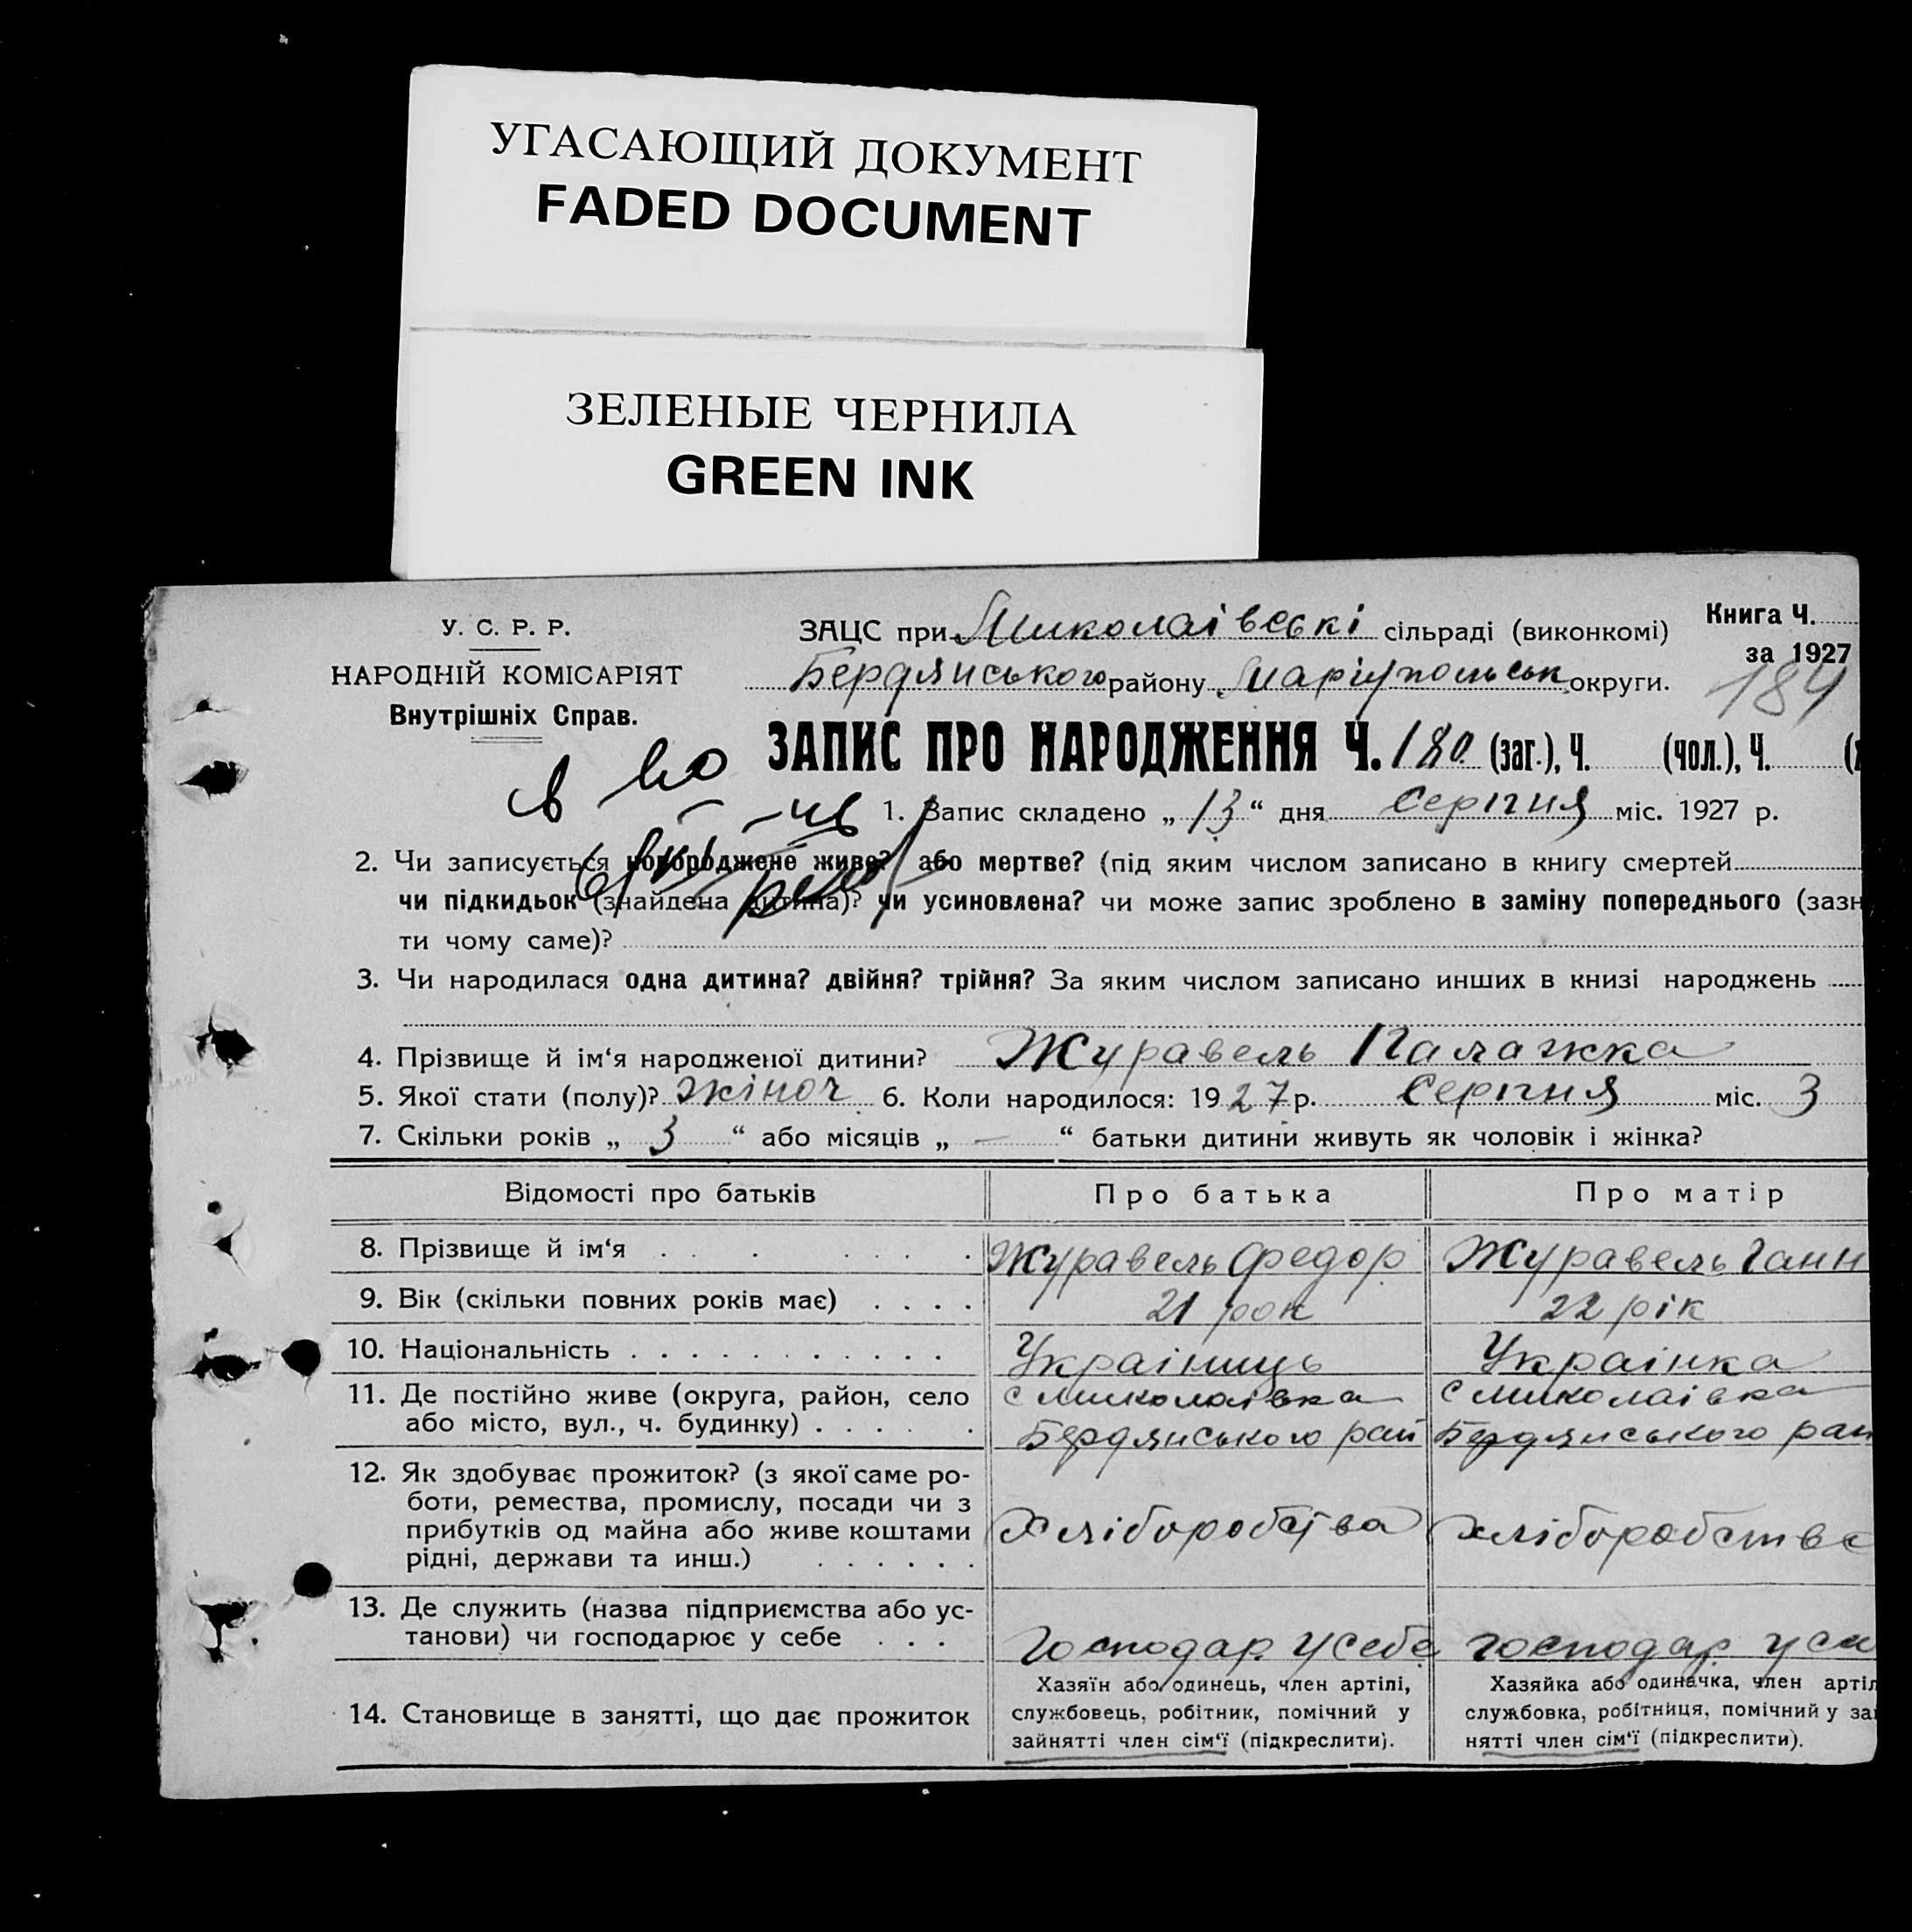 УГАСАЮЩИЙ ДОКУМЕНТ
FADED DOCUMENT
ЗЕЛЕНЫЕ ЧЕРНИЛА
GREEN INK
У. С. Р. Р.
НАРОДНІЙ КОМІСАРІЯТ
Внутрішніх Справ.
ЗАЦС при Миколаівські сільраді (виконкомі)
Бердянського району Маріупольськ округи.
Книга Ч.
за 1927
184
ЗАПИС ПРО НАРОДЖЕННЯ Ч. 180 (заг.), Ч. (чол.), Ч.
1. Запис складено „ 13 “ дня Серпня міс. 1927 р.
2. Чи записується новороджене живе? або мертве? (під яким числом записано в книгу смертей
чи підкидьок (знайдена дитина)? чи усиновлена? чи може запис зроблено в заміну попереднього (зазн
ти чому саме)?
3. Чи народилася одна дитина? двійня? трійня? За яким числом записано инших в книзі народжень
4. Прізвище й ім‘я народженої дитини? Журавель Палажка
5. Якої стати (полу)? жіноч 6. Коли народилося: 1927 р. Серпня міс. 3
7. Скільки років „ 3 “ або місяців „ — “ батьки дитини живуть як чоловік і жінка?
Відомості про батьків Про батька Про матір
8. Прізвище й ім‘я . . . . . . . Журавель Федор Журавель Ганн
9. Вік (скільки повних років має) . . . . 21 рок 22 рік
10. Національність . . . . . . . . . . . . Украіниць Украінка
11. Де постійно живе (округа, район, село с Миколаівка с Миколаівка
або місто, вул., ч. будинку) . . . . . . Бердянського рай Бердянського рай
12. Як здобуває прожиток? (з якої саме ро-
боти, ремества, промислу, посади чи з
прибутків од майна або живе коштами Хліборобства хліборобства
рідні, держави та инш.) . . . . . .
13. Де служить (назва підприємства або ус-
танови) чи господарює у себе . . . Господар у себе господар у
14. Становище в занятті, що дає прожиток
Хазяїн або одинець, член артілі,
службовець, робітник, помічний у
зайнятті член сім‘ї (підкреслити).
Хазяйка або одиначка, член артіл
службовка, робітниця, помічний у за
нятті член сім‘ї (підкреслити).